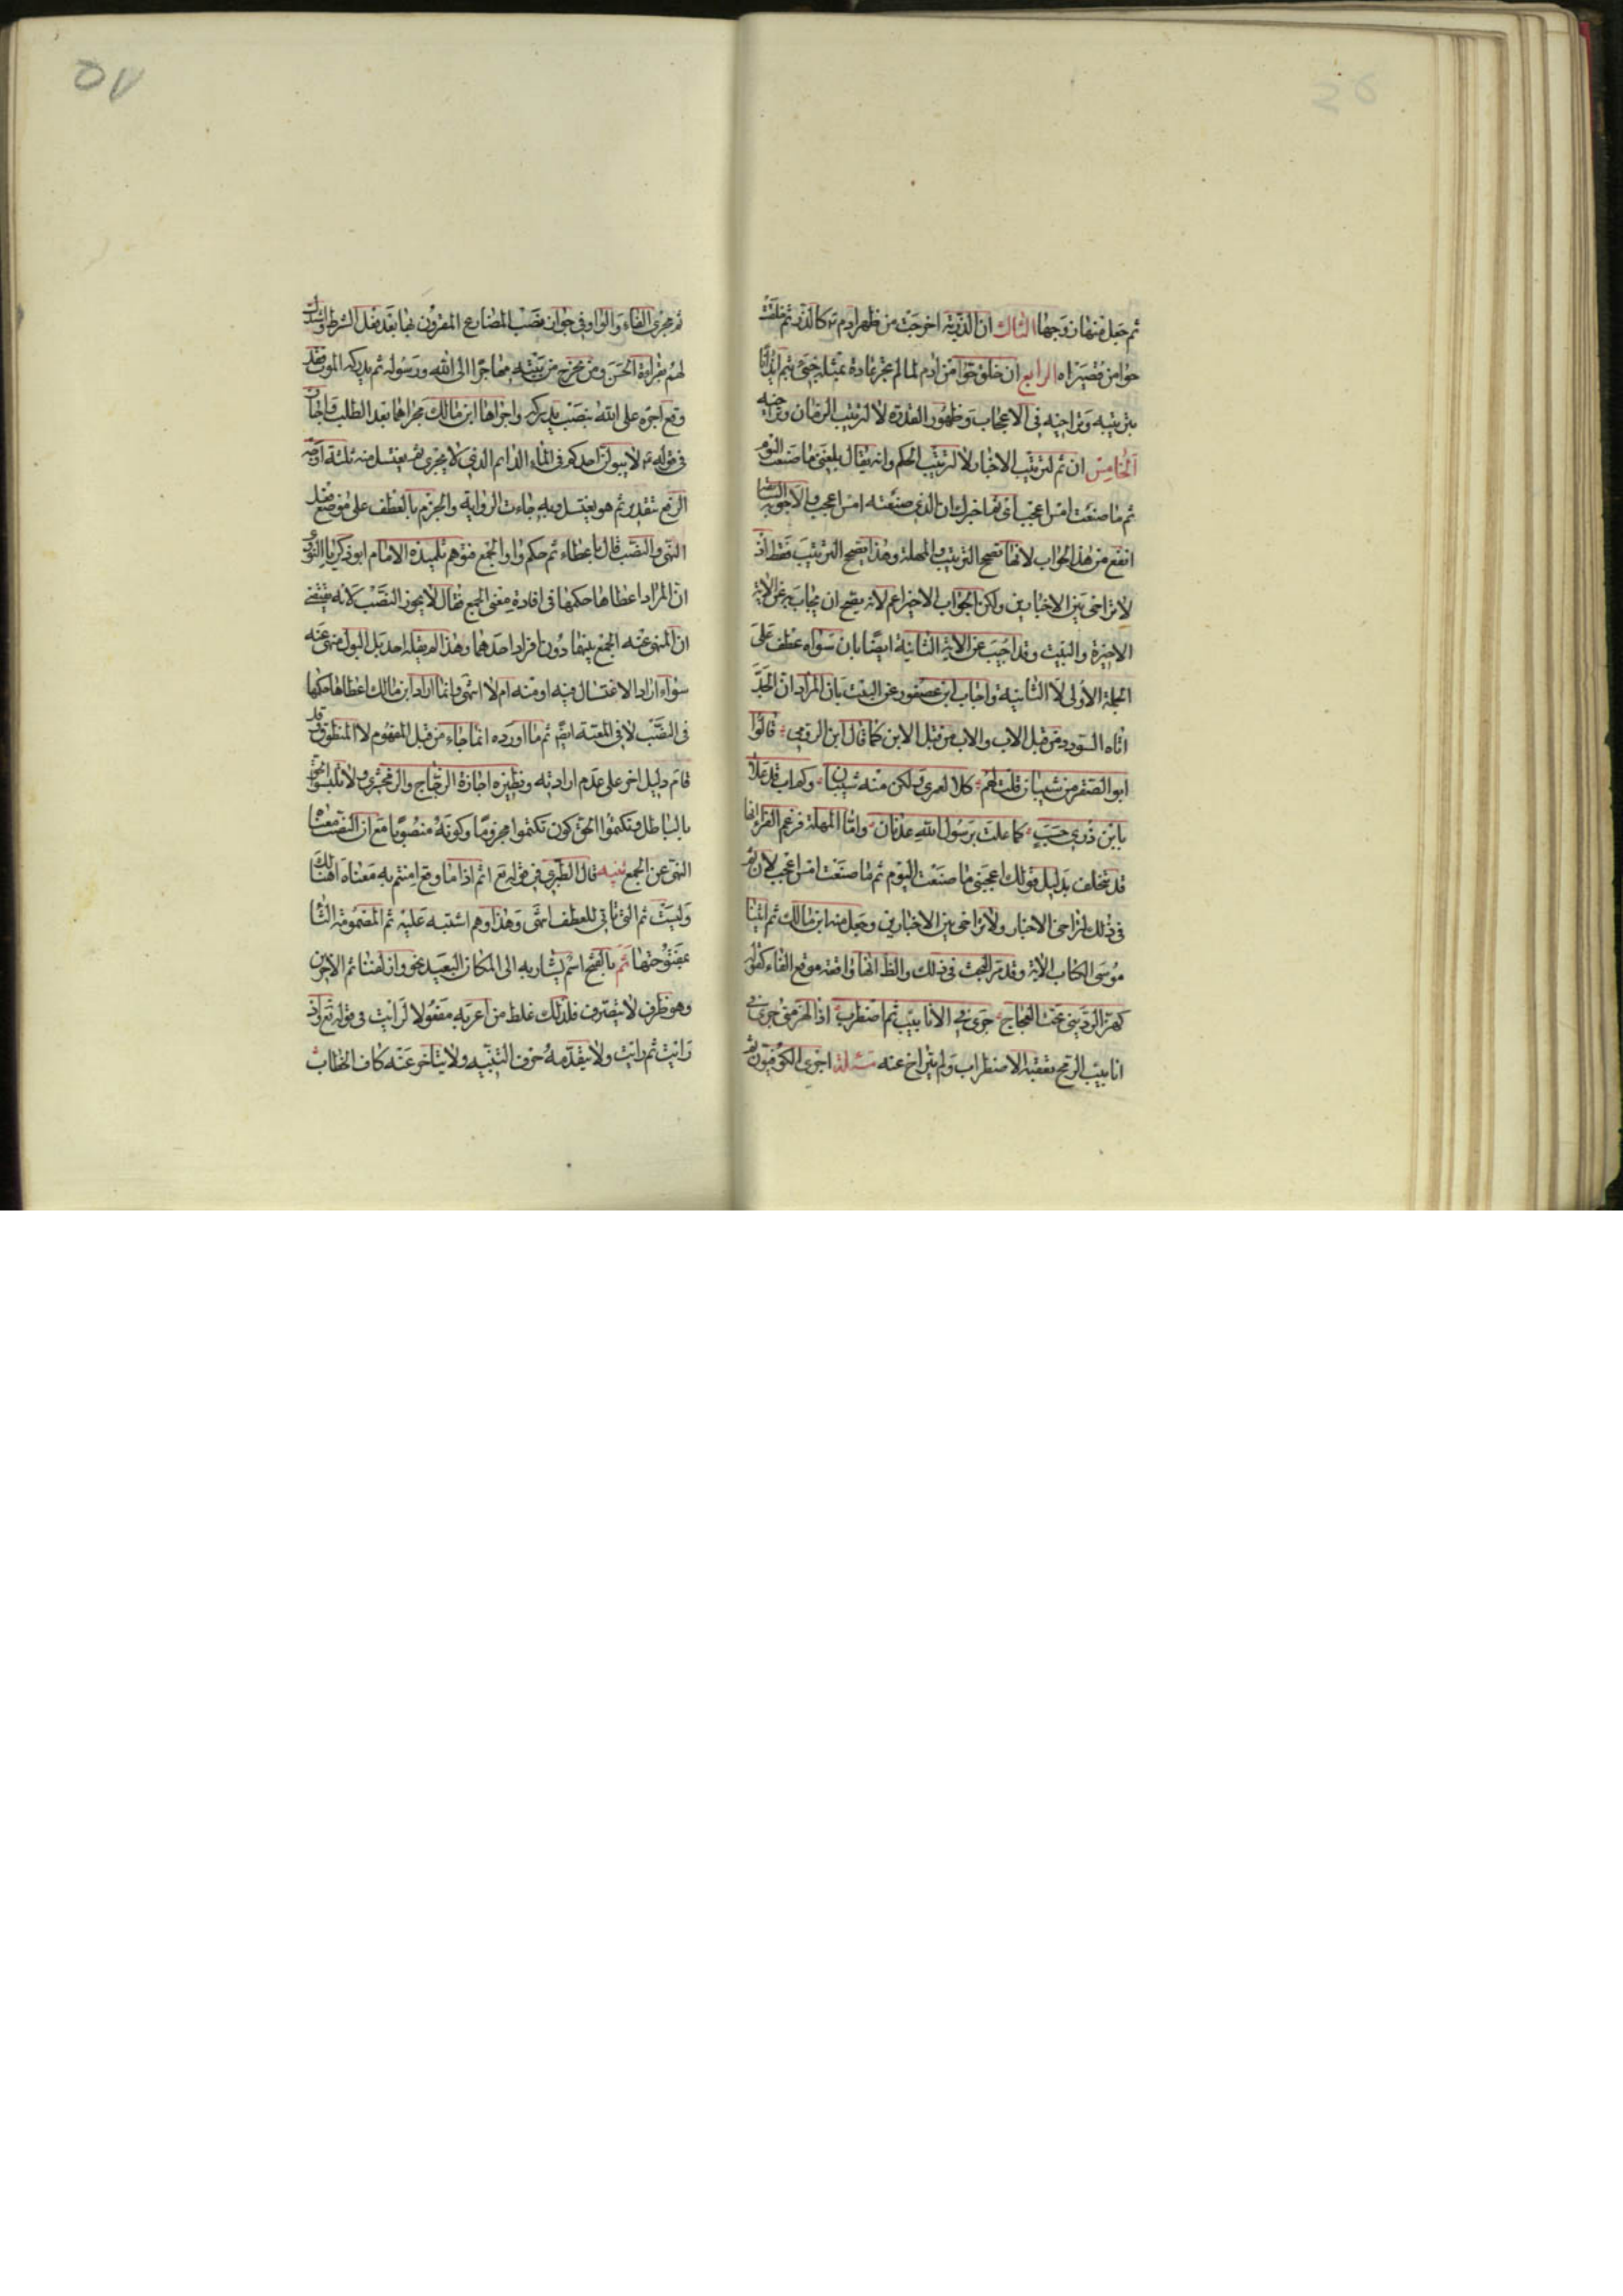 ثم جعل منها زوجها الثالث ان الذرية اخرجت من ظهر ادم ع كالذر ثم خلقت
حوا من قصيراه الرابع ان خلق حوا من ادم لما لم تجر عادة بمثله جئ بثم ايذانا
بترتيبه وتراخيه فى الاعجاب وظهور القدرة لا لترتيب الزمان وتراخيه
الخامس ان ثم لترتيب الاخبار لا لترتيب الحكم وانه يقال بلغنى ما صنعت اليوم
ثم ما صنعت امس اعجب اى ثم اخبرك ان الذى صنعته امس اعجب والاجوبة السابقة
انفع من هذا الجواب لانها تصحح الترتيب والمهلة وهذا يصحح الترتيب فقط اذ
لا تراخى بين الاخبارين ولكن الجواب الاخير اعم لانه يصح ان يجاب به عن الاية
الاخيرة والبيت وقد اجيب عن الاية الثانية ايضا بان سواه عطف على
الجملة الاولى لا الثانية واجاب ابن عصفور عن البيت بان المراد ان الجد
اتاه السودد من قبل الاب والاب من قبل الابن كما قال ابن الرومى قالوا
ابو الصقر من شيبان قلت لهم كلا لعمرى ولكن منه شيبان وكم اب قد علا
بابن ذرى حسب كما علت برسول الله عدنان واما المهلة فزعم الفراء انها
قد تتخلف بدليل قولك اعجبنى ما صنعت اليوم ثم ما صنعت امس اعجب لان ثم
فى ذلك لتراخى الاخبار ولا تراخى بين الاخبارين وجعل منه ابن مالك ثم اتينا
موسى الكتاب الاية وقد مر البحث فى ذلك والظ انها واقعة موقع الفاء كقوله
كهز الردينى تحت العجاج جرى فى الانابيب ثم اضطرب اذ الهز متى جرى فى
انابيب الرمح تعقبه الاضطراب ولم يتراخ عنه مسئلة اجرى الكوفيون ثم
ثم مجرى الفاء والواو فى جواز نصب المضارع المقرون بها بعد فعل الشرط واستدل
لهم بقراءة الحسن ومن يخرج من بيته مهاجرا الى الله ورسوله ثم يدركه الموت فقد
وقع اجره على الله بنصب يدركه واجراها ابن مالك مجراهما بعد الطلب فاجاز
فى قوله ع لا يبولن احدكم فى الماء الدائم الذى لا يجرى ثم يغتسل منه ثلثة اوجه
الرفع بتقدير ثم هو يغتسل وبه جاءت الرواية والجزم بالعطف على موضع فعل
النهى والنصب قال باعطاء ثم حكم واو الجمع فتوهم تلميذه الامام ابو زكريا النووى
ان المراد اعطاها حكمها فى افادة معنى الجمع فقال لا يجوز النصب لانه يقتضى
ان المنهى عنه الجمع بينهما دون افراد احدهما وهذا لم يقله احد بل البول منهى عنه
سواء اراد الاغتسال فيه او منه ام لا انتهى وانما اراد ابن مالك اعطاها حكمها
فى النصب لا فى المعية ايضا ثم ما اورده انما جاء من قبل المفهوم لا المنطوق وقد
قام دليل اخر على عدم ارادته ونظيره اجازة الزجاج والزمخشرى ولا تلبسوا الحق
بالباطل وتكتموا الحق كون تكتموا مجزوما وكونه منصوبا مع ان النصب معناه
النهى عن الجمع تنبيه قال الطبرى فى قوله تع اثم اذا ما وقع امنتم به معناه اهنالك
وليست ثم التى تاتى للعطف انتهى وهذا وهم اشتبه عليه ثم المضمومة الثا
بمفتوحتها ثم بالفتح اسم يشار به الى المكان البعيد نحو وازلفنا ثم الاخرين
وهو ظرف لا يتصرف فلذلك غلط من اعربه مفعولا لرايت فى قوله تع واذ
رايت ثم رايت ولا يتقدمه حرف التنبيه ولا يتاخر عنه كاف الخطاب